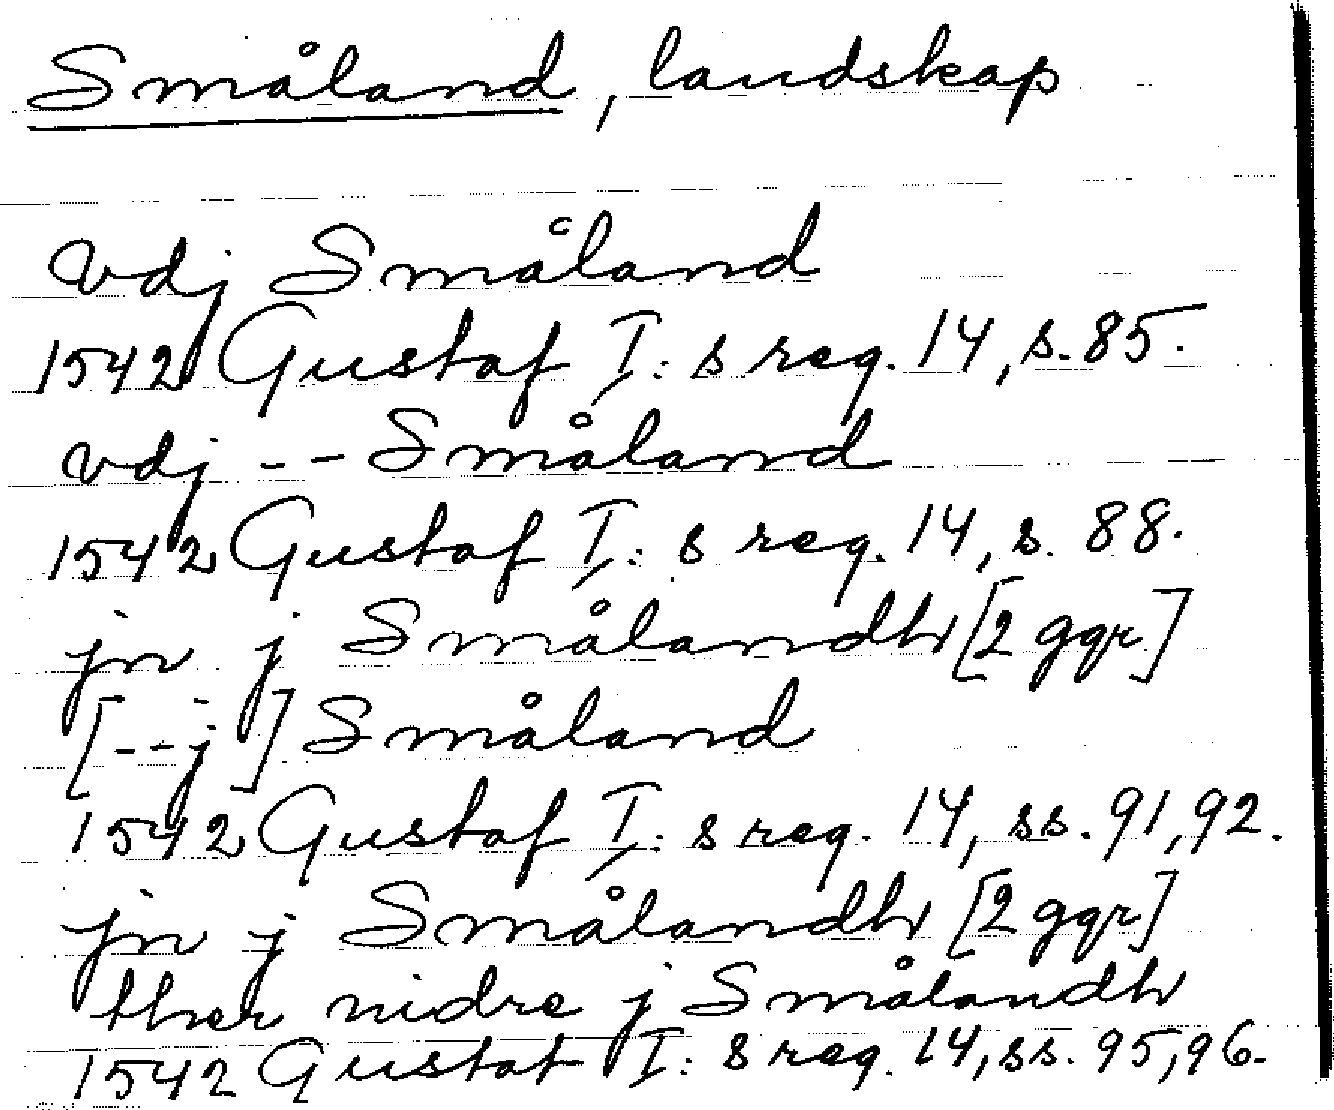 Småland, landskap
vdj Småland
1542 Gustaf I:s reg. 14, s. 85.
vdj -- Småland
1542 Gustaf I:s reg. 14, s. 88.
jn j Smålandh [2 ggr]
[--j] Småland
1542 Gustaf I:s reg. 14, ss. 91, 92.
jn j Smålandh [2 ggr]
ther nidre j Smålandh
1542 Gustaf I:s reg. 14, ss. 95, 96.